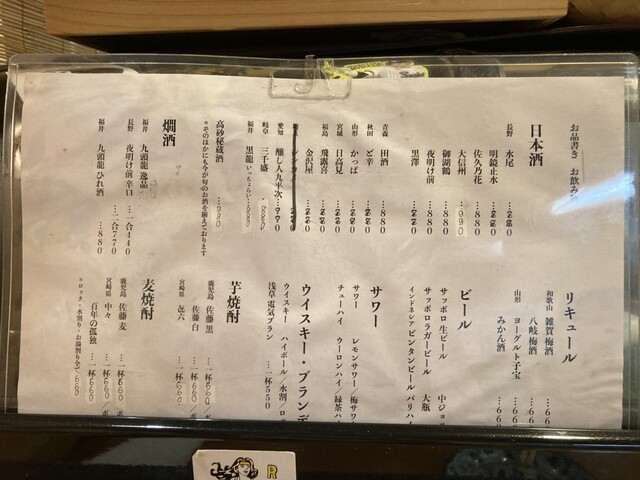 お品書き　お飲み
日本酒
長野　水尾　…880
明鏡止水　…880
佐久乃花　…880
大信州　…990
御湖鶴　…880
夜明け前　…880
黒澤　…880
青森　田酒　…880
秋田　ど辛　…880
山形　かっぱ　…880
宮城　日高見　…880
福島　飛露喜　…880
金沢屋　…880
愛知　醸し人九平次…990
岐阜　三千盛
福井　黒龍 いっちょらい
高砂秘蔵酒　…990
※そのほかにも今が旬のお酒を揃えております
燗酒
福井　九頭龍 逸品　…一合440
長野　夜明け前辛口　…二合770
福井　九頭龍 ひれ酒　…880
リキュール
和歌山　雑賀 梅酒
八岐梅酒　…66
山形　ヨーグルト子宝　…66
みかん酒　…66
ビール
サッポロ 生ビール　中ジョ
サッポロラガービール　大瓶
インドネシア ビンタンビール　バリハイ
サワー
サワー　レモンサワー/梅サワ
チューハイ　ウーロンハイ/緑茶ハ
ウイスキー・ブランデ
ウイスキー　ハイボール/水割/ロ
浅草電気ブラン　…一杯550
芋焼酎
鹿児島　佐藤 黒　…一杯660/ボ
佐藤 白　…一杯660/ボ
宮崎県　㐂六　…一杯660/
麦焼酎
鹿児島　佐藤 麦　…一杯660/ボ
宮崎県　中々　…一杯660/ボ
百年の孤独　…一杯660
※ロック・水割り・お湯割り全て660
R